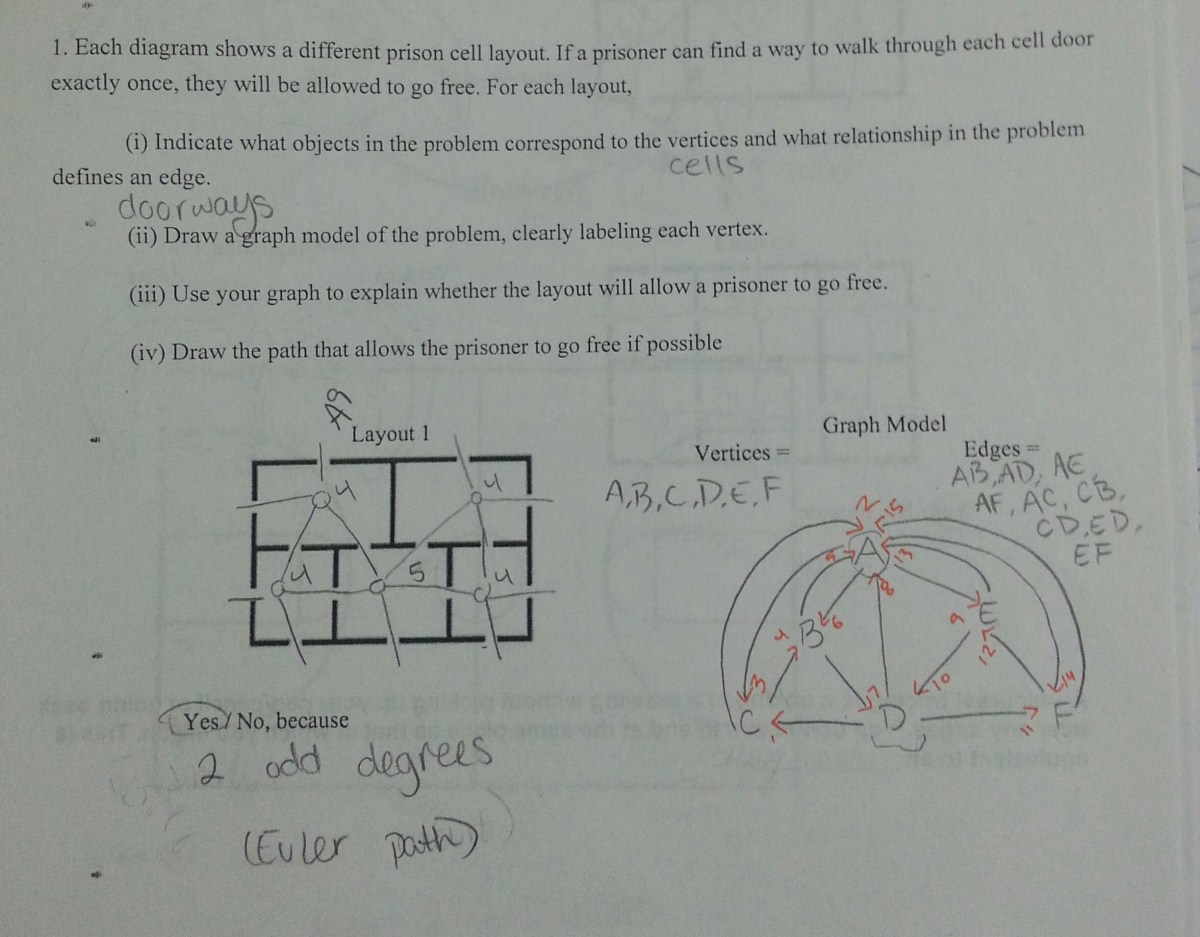 1. Each diagram shows a different prison cell layout. If a prisoner can find a way to walk through each cell door
exactly once, they will be allowed to go free. For each layout,
(i) Indicate what objects in the problem correspond to the vertices and what relationship in the problem
cells
defines an edge.
doorways
(ii) Draw a graph model of the problem, clearly labeling each vertex.
(iii) Use your graph to explain whether the layout will allow a prisoner to go free.
(iv) Draw the path that allows the prisoner to go free if possible
A9
Layout 1
Graph Model
Vertices =
Edges =
A,B,C,D,E,F
AB,AD, AE,
AF, AC, CB,
CD,ED,
EF
4
4
4
5
4
2
15
5
A
13
8
4
B
6
9
E
12
3
7
10
14
C
1
D
11
F
Yes / No, because
2 odd degrees
(Euler path)